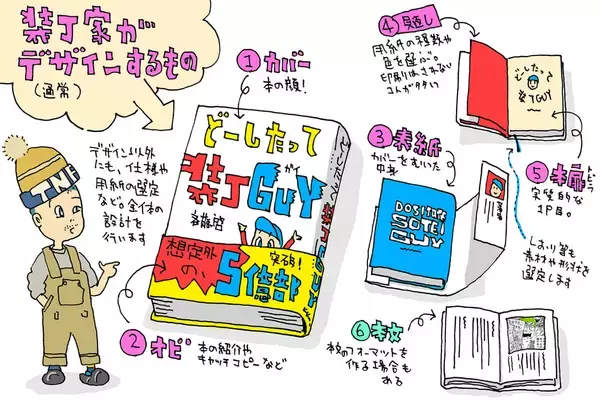 装丁家が
デザインするもの
(通常)
①カバー
本の顔!
デザイン以外
にも、仕様や
用紙の選定
など。全体の
設計を
行います
どーしたって
装丁GUY
ガイ
想定外
の、
突破!
5億部
②オビ
本の紹介や
キャッチコピーなど
③表紙
カバーをむいた
中身
DOSITATTE
SOTEI
GUY
④見返し
用紙の種類や
色を選ぶ。
印刷はされない
コトが多い
どーしたって
装丁GUY
⑤本扉
とびら
実質的な
1P目。
しおり等も
素材や形状を
選定します
⑥本文
本文のフォーマットを
作る場合も
ある